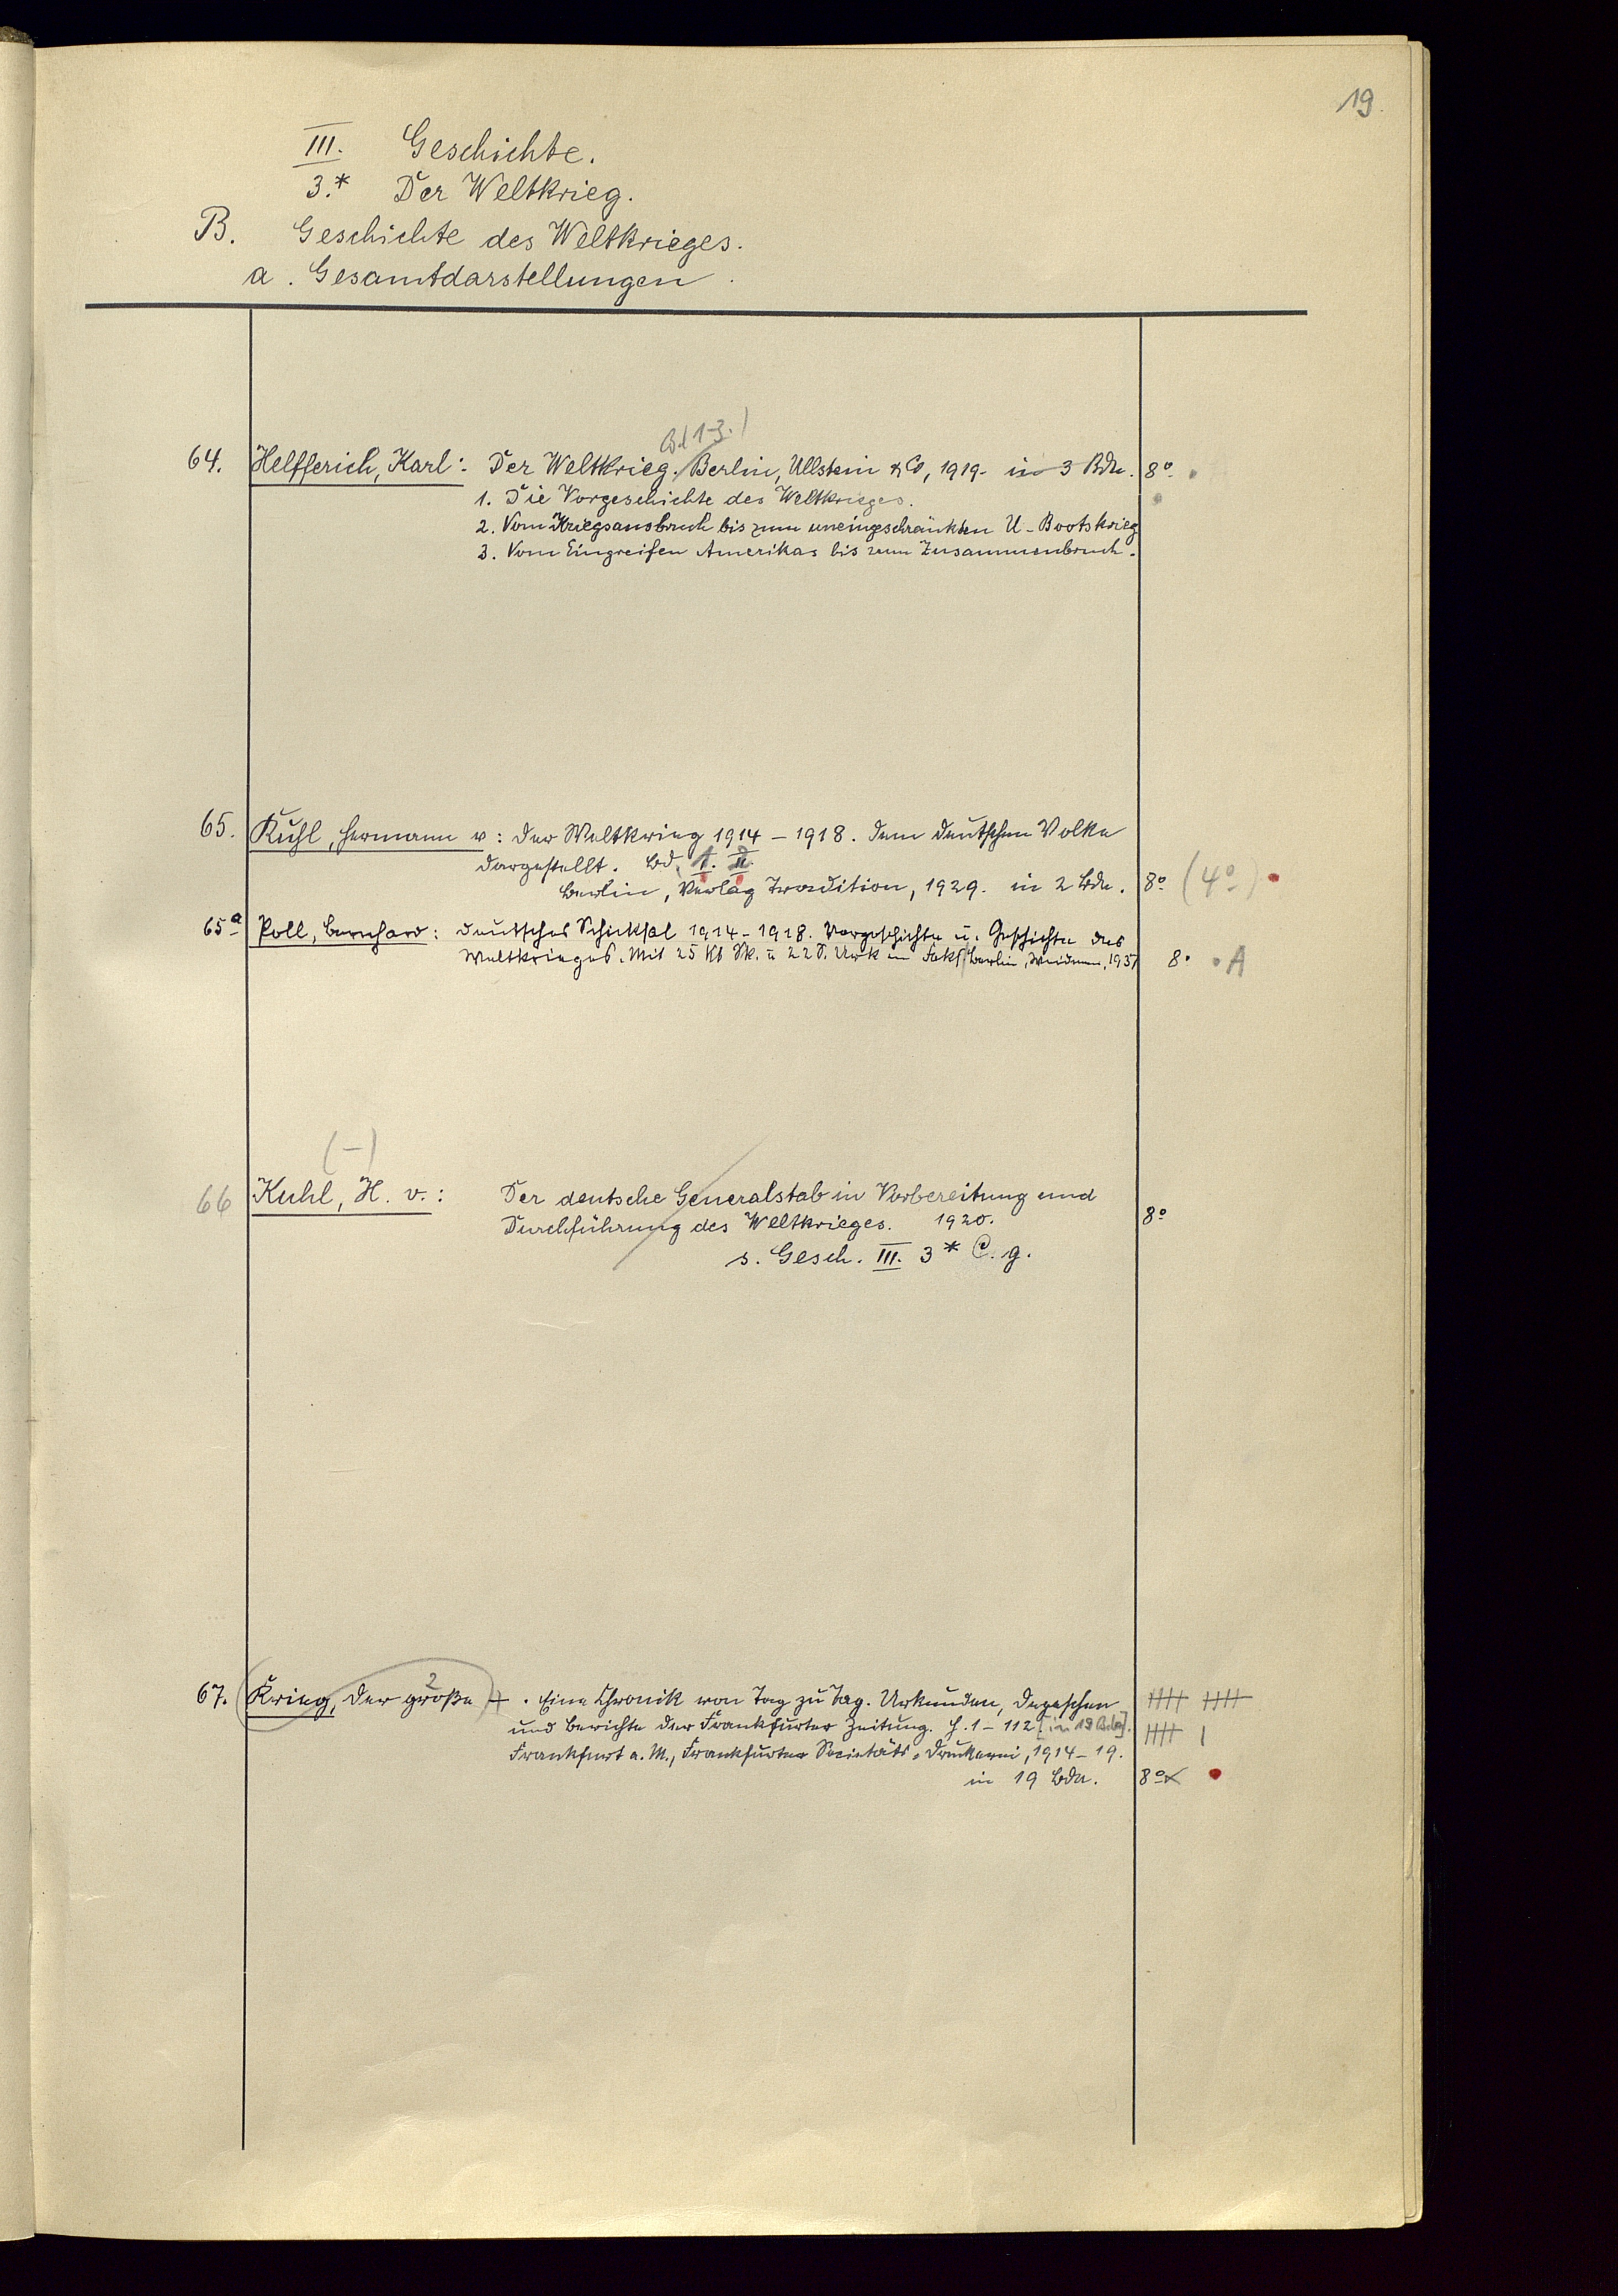 19.
III. Geschichte.
3.* Der Weltkrieg.
B. Geschichte des Weltkrieges.
a. Gesamtdarstellungen.
Bd 1-3.)
64. Helfferich, Karl: Der Weltkrieg. Berlin, Ullstein & Co, 1919. in 3 Bdn. 8°
1. Die Vorgeschichte des Weltkrieges.
2. Vom Kriegsausbruch bis zum uneingeschränkten U-Bootskrieg
3. Vom Eingreifen Amerikas bis zum Zusammenbruch.
65. Kuhl, Hermann v: Der Weltkrieg 1914-1918. Dem deutschen Volke
dargestellt. Bd. I. II.
Berlin, Verlag Tradition, 1929. in 2 Bdn. 8° (4°)
65a Poll, Bernhard: Deutsches Schicksal 1914-1918. Vorgeschichte u. Geschichte des
Weltkrieges. Mit 25 Kt Sk. u 22 S. Urk in Faks. Berlin, Weidmann, 1937 8° A
(-)
66 Kuhl, H. v.: Der deutsche Generalstab in Vorbereitung und
Durchführung des Weltkrieges. 1920. 8°
s. Gesch. III. 3* C. g.
67. Krieg, Der große 2. Eine Chronik von Tag zu Tag. Urkunden, Depeschen
und Berichte der Frankfurter Zeitung. H. 1-112. [in 19 Bdn].
Frankfurt a. M., Frankfurter Societäts-Druckerei, 1914-19.
in 19 Bdn. 8°